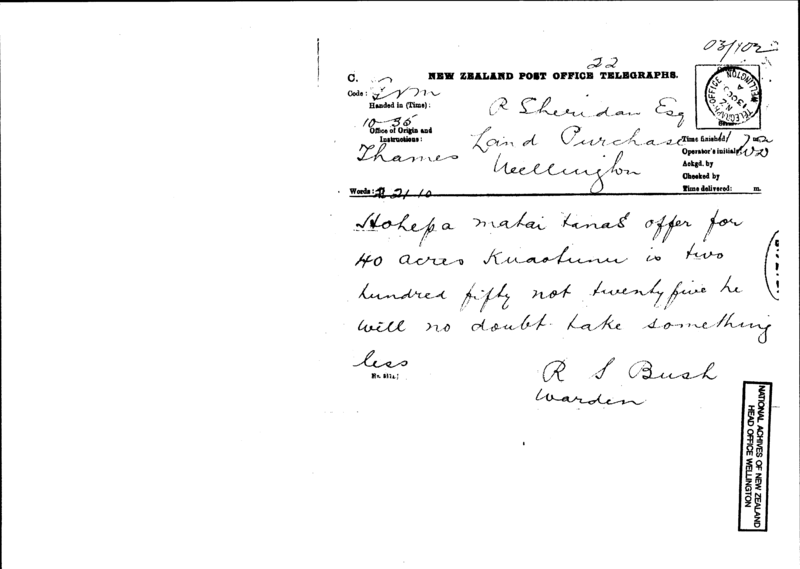 03/102
22
C. NEW ZEALAND POST OFFICE TELEGRAPHS.
Code:
Handed in (Time):
10-35
Office of Origin and
Instructions:
Thames
R Sheridan Esq
Land Purchase
Wellington
TELEGRAPH-OFFICE WELLINGTON
N.Z
13 OC
Time finished
Operator's initials
Ackgd. by
Checked by
Time delivered: m.
Words: 21 10
Hohepa matai tanas offer for
40 acres Kuaotunu is two
hundred fifty not twentyfive he
will no doubt take something
less
R S Bush
Warden
NATIONAL ACHIVES OF NEW ZEALAND
HEAD OFFICE WELLINGTON